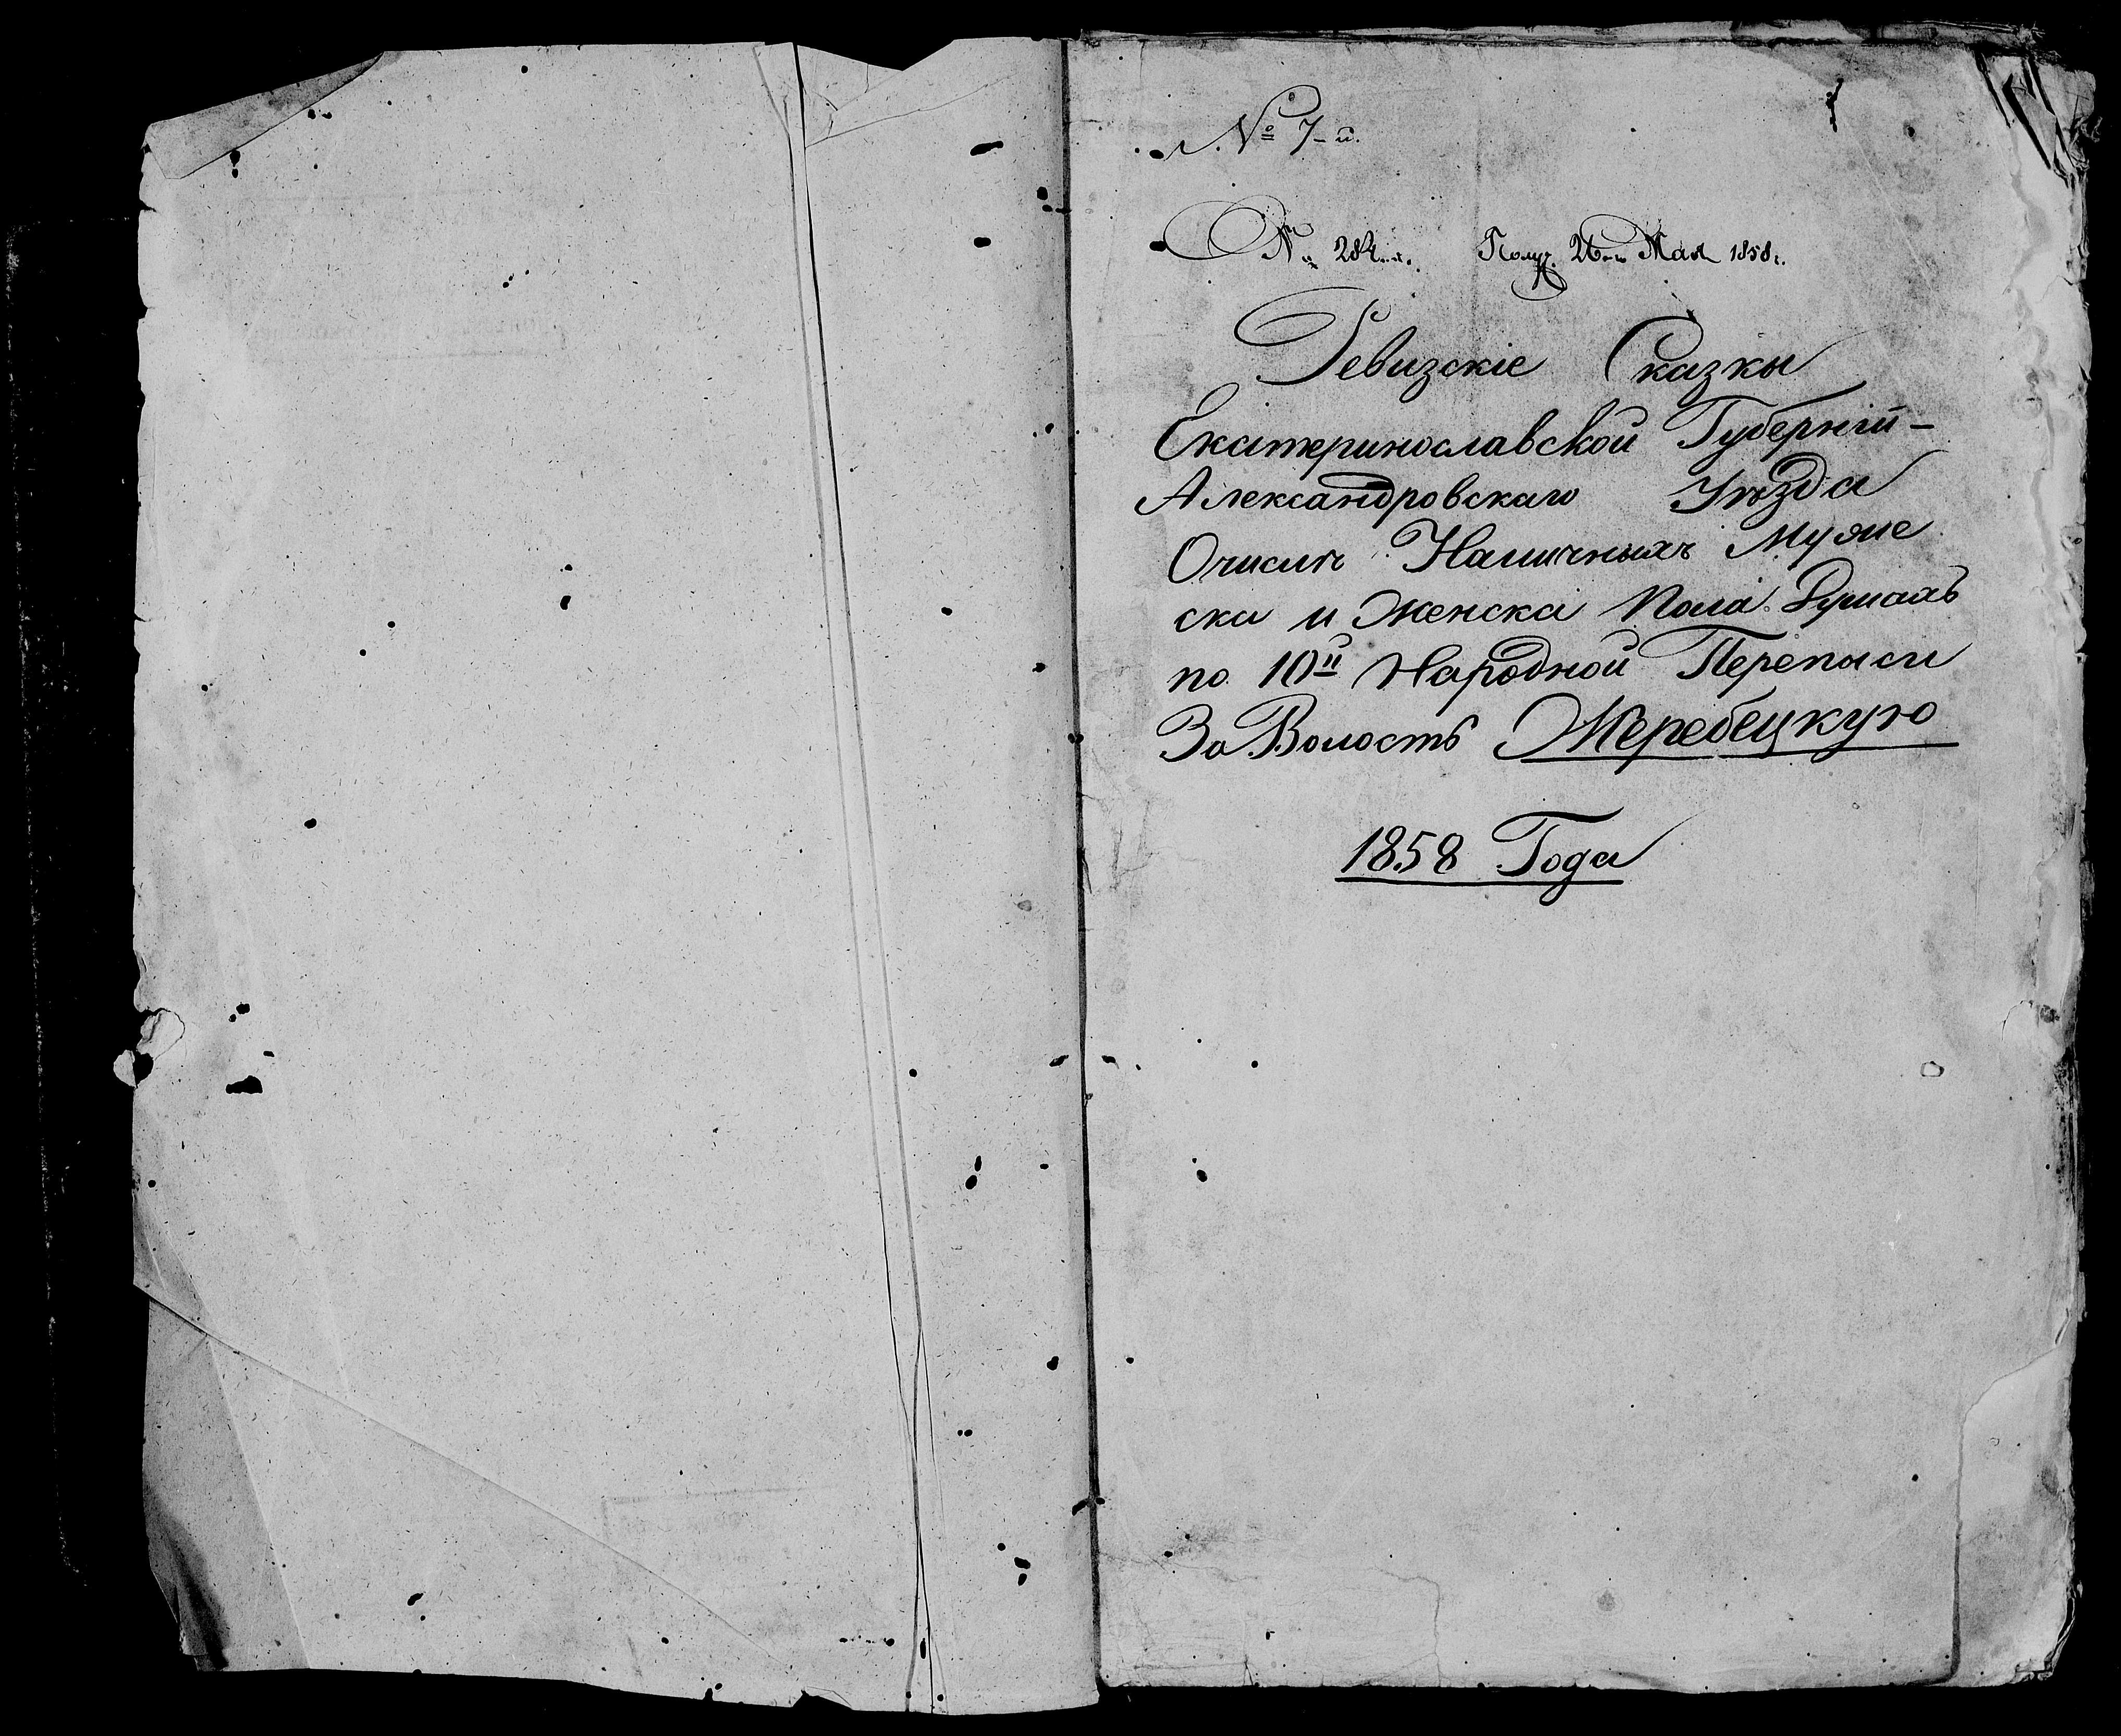 № 7-й.
№ 284. Получ. 26го Мая 1858 г.
Ревизскіе Сказкы
Екатеринославской Губерній-
Александровскаго Уѣзда
Очислѣ Наличныхъ Муже
ска и Женска Пола Душахъ
по 10й Народной Переписи
За Волость Жеребецкую
1858 Года